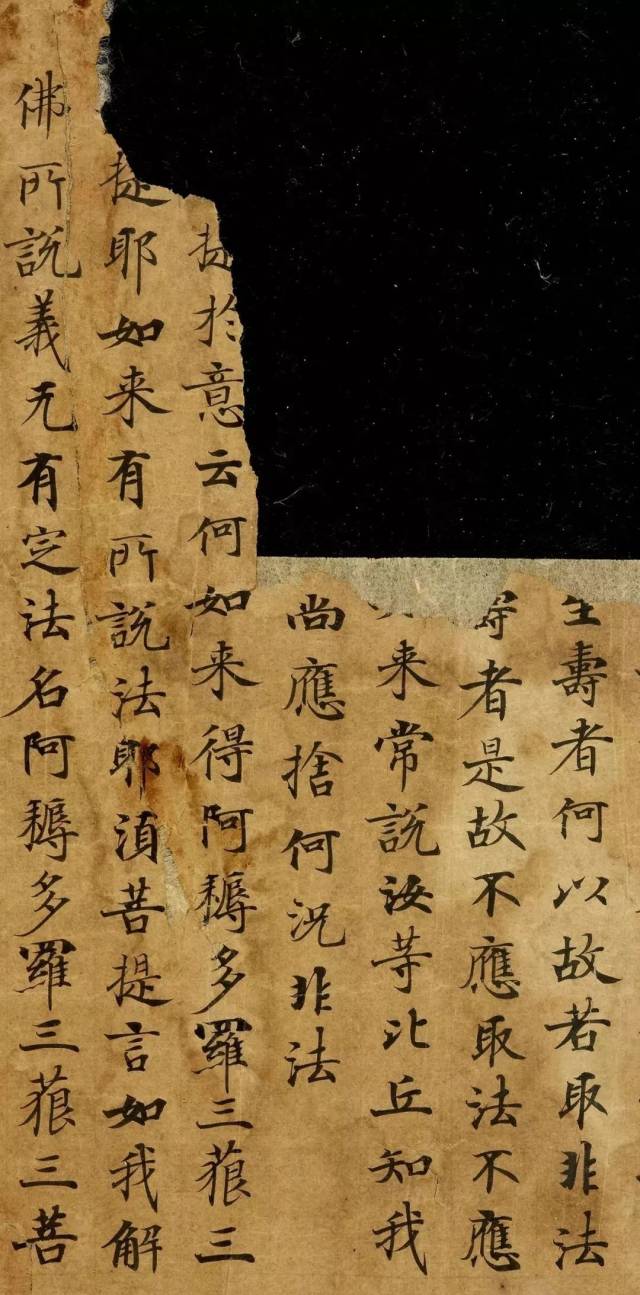 生壽者何以故若取非法
者是故不應取法不應
来常說汝等比丘知我
尚應捨何況非法
提於意云何如来得阿耨多羅三藐三
提耶如来有所說法耶湏菩提言如我解
佛所說義无有定法名阿耨多羅三藐三菩